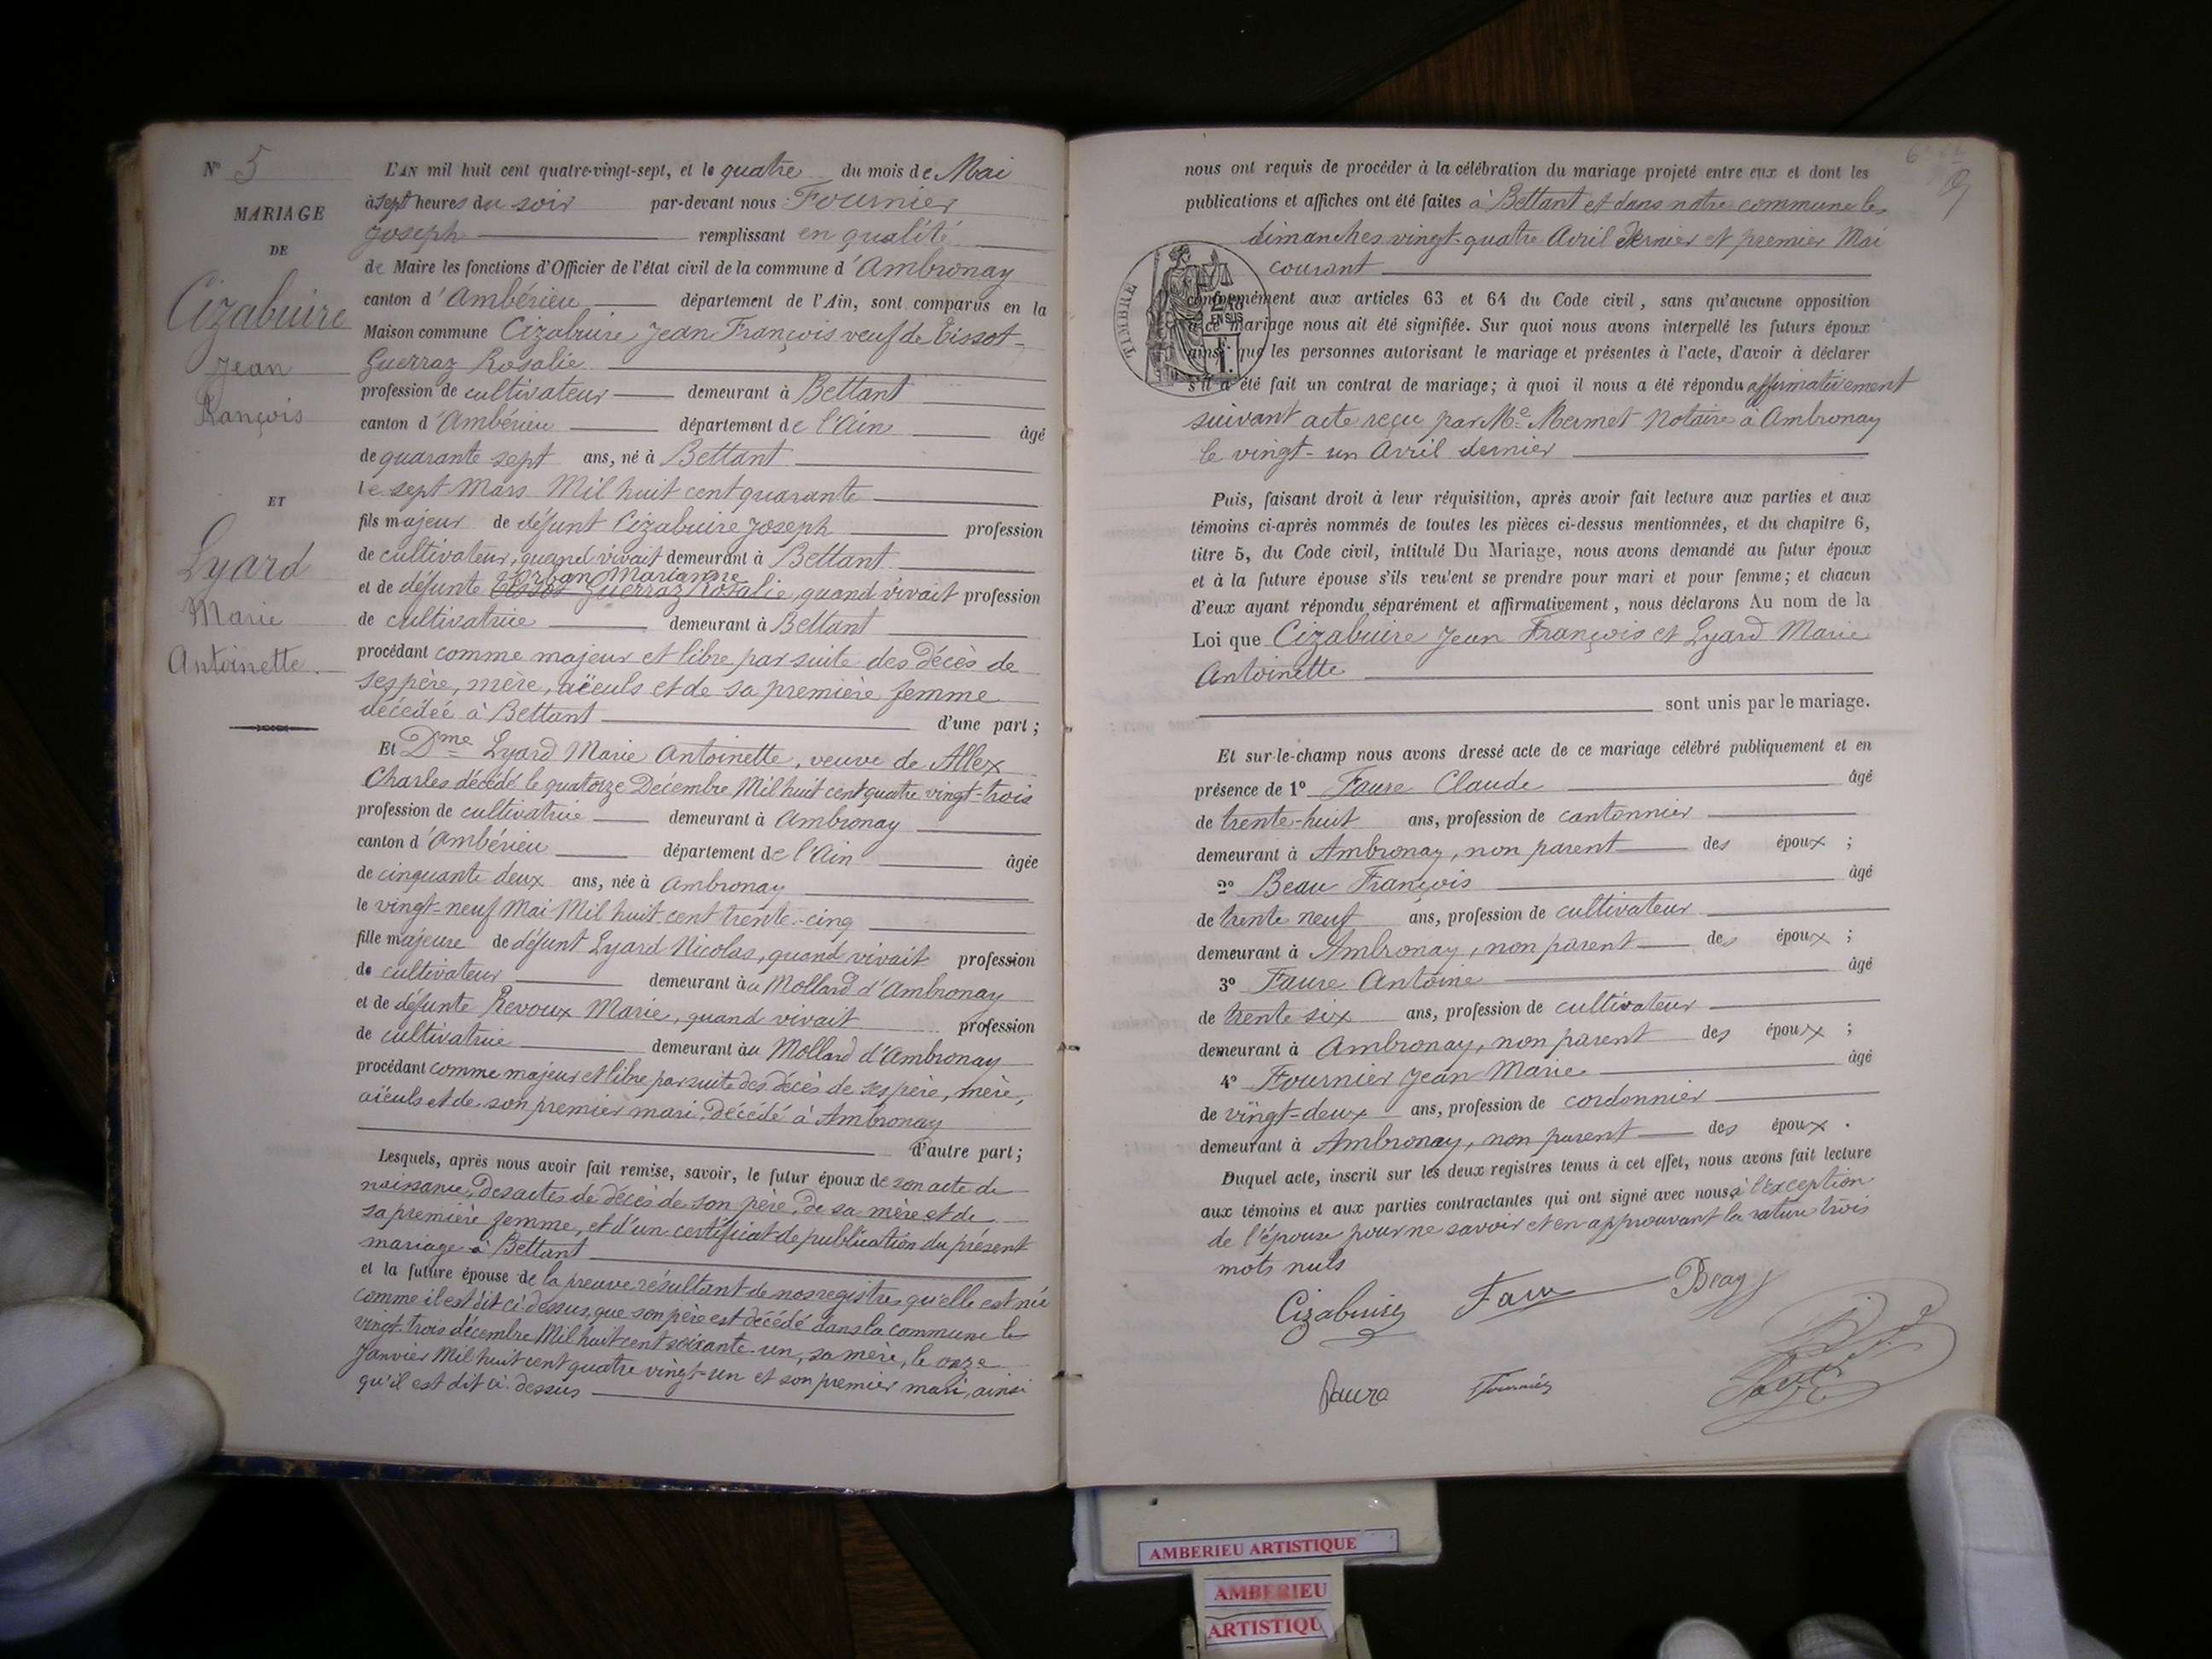 N° 5
MARIAGE
DE
Cizabuire
Jean
François
ET
Lyard
Marie
Antoinette.
L'AN mil huit cent quatre-vingt-sept, et le quatre du mois de Mai
à sept heures du soir par-devant nous Fournier
Joseph remplissant en qualité
de Maire les fonctions d'Officier de l'état civil de la commune d'Ambronay
canton d'Ambérieu département de l'Ain, sont comparus en la
Maison commune Cizabuire Jean François veuf de Tissot-
Guerraz Rosalie
profession de cultivateur demeurant à Bettant
canton d'Ambérieu département de l'Ain âgé
de quarante sept ans, né à Bettant
le sept Mars Mil huit cent quarante
fils majeur de défunt Cizabuire Joseph profession
de cultivateur, quand vivait demeurant à Bettant
Orban Marianne
et de défunte Tissot Guerraz Rosalie, quand vivait profession
de cultivatrice demeurant à Bettant
procédant comme majeur et libre par suite des décès de
ses père, mère, aïeuls et de sa première femme
décédée à Bettant d'une part;
Et Dme Lyard Marie Antoinette, veuve de Allex
Charles décédé le quatorze Décembre Mil huit cent quatre vingt-trois
profession de cultivatrice demeurant à Ambronay
canton d'Ambérieu département de l'Ain âgée
de cinquante deux ans, née à Ambronay
le vingt-neuf Mai Mil huit cent trente-cinq
fille majeure de défunt Lyard Nicolas, quand vivait profession
de cultivateur demeurant au Mollard d'Ambronay
et de défunte Revoux Marie, quand vivait profession
de cultivatrice demeurant au Mollard d'Ambronay
procédant comme majeur et libre par suite des décès de ses père, mère,
aïeuls et de son premier mari, décédé à Ambronay
d'autre part;
Lesquels, après nous avoir fait remise, savoir, le futur époux de son acte de
naissance, des actes de décès de son père, de sa mère et de
sa première femme, et d'un certificat de publication du présent
mariage à Bettant
et la future épouse de la preuve résultant de nos registres qu'elle est née
comme il est dit ci-dessus, que son père est décédé dans la commune le
vingt-trois décembre Mil huit cent soixante-un, sa mère, le onze
Janvier Mil huit cent quatre vingt-un et son premier mari, ainsi
qu'il est dit ci-dessus
nous ont requis de procéder à la célébration du mariage projeté entre eux et dont les
publications et affiches ont été faites à Bettant et dans notre commune les
dimanches vingt-quatre Avril dernier et premier Mai
courant
TIMBRE
EN SUS
conformément aux articles 63 et 64 du Code civil, sans qu'aucune opposition
à ce mariage nous ait été signifiée. Sur quoi nous avons interpellé les futurs époux
ainsi que les personnes autorisant le mariage et présentes à l'acte, d'avoir à déclarer
s'il a été fait un contrat de mariage; à quoi il nous a été répondu affirmativement
suivant acte reçu par Me Mermet Notaire à Ambronay
le vingt-un Avril dernier
Puis, faisant droit à leur réquisition, après avoir fait lecture aux parties et aux
témoins ci-après nommés de toutes les pièces ci-dessus mentionnées, et du chapitre 6,
titre 5, du Code civil, intitulé Du Mariage, nous avons demandé au futur époux
et à la future épouse s'ils veu'ent se prendre pour mari et pour femme; et chacun
d'eux ayant répondu séparément et affirmativement, nous déclarons Au nom de la
Loi que Cizabuire Jean François et Lyard Marie
Antoinette
sont unis par le mariage.
Et sur-le-champ nous avons dressé acte de ce mariage célébré publiquement et en
présence de 1° Faure Claude âgé
de trente-huit ans, profession de cantonnier
demeurant à Ambronay, non parent des époux ;
2° Beau François âgé
de trente neuf ans, profession de cultivateur
demeurant à Ambronay, non parent des époux ;
3° Faure Antoine âgé
de trente six ans, profession de cultivateur
demeurant à Ambronay, non parent des époux ;
4° Fournier Jean Marie âgé
de vingt-deux ans, profession de cordonnier
demeurant à Ambronay, non parent des époux.
Duquel acte, inscrit sur les deux registres tenus à cet effet, nous avons fait lecture
aux témoins et aux parties contractantes qui ont signé avec nous à l'exception
de l'épouse pour ne savoir et en approuvant la rature trois
mots nuls
Cizabuire Faure Beau
Faure Fournier
AMBERIEU ARTISTIQUE
AMBERIEU
ARTISTIQU